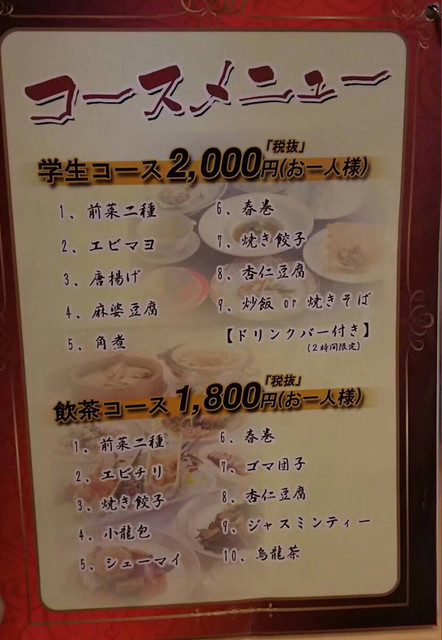 コースメニュー
学生コース2,000円「税抜」(お一人様)
1、前菜二種
2、エビマヨ
3、唐揚げ
4、麻婆豆腐
5、角煮
6、春巻
7、焼き餃子
8、杏仁豆腐
9、炒飯 or 焼きそば
【ドリンクバー付き】
(2時間限定)
飲茶コース1,800円「税抜」(お一人様)
1、前菜二種
2、エビチリ
3、焼き餃子
4、小龍包
5、シューマイ
6、春巻
7、ゴマ団子
8、杏仁豆腐
9、ジャスミンティー
10、烏龍茶